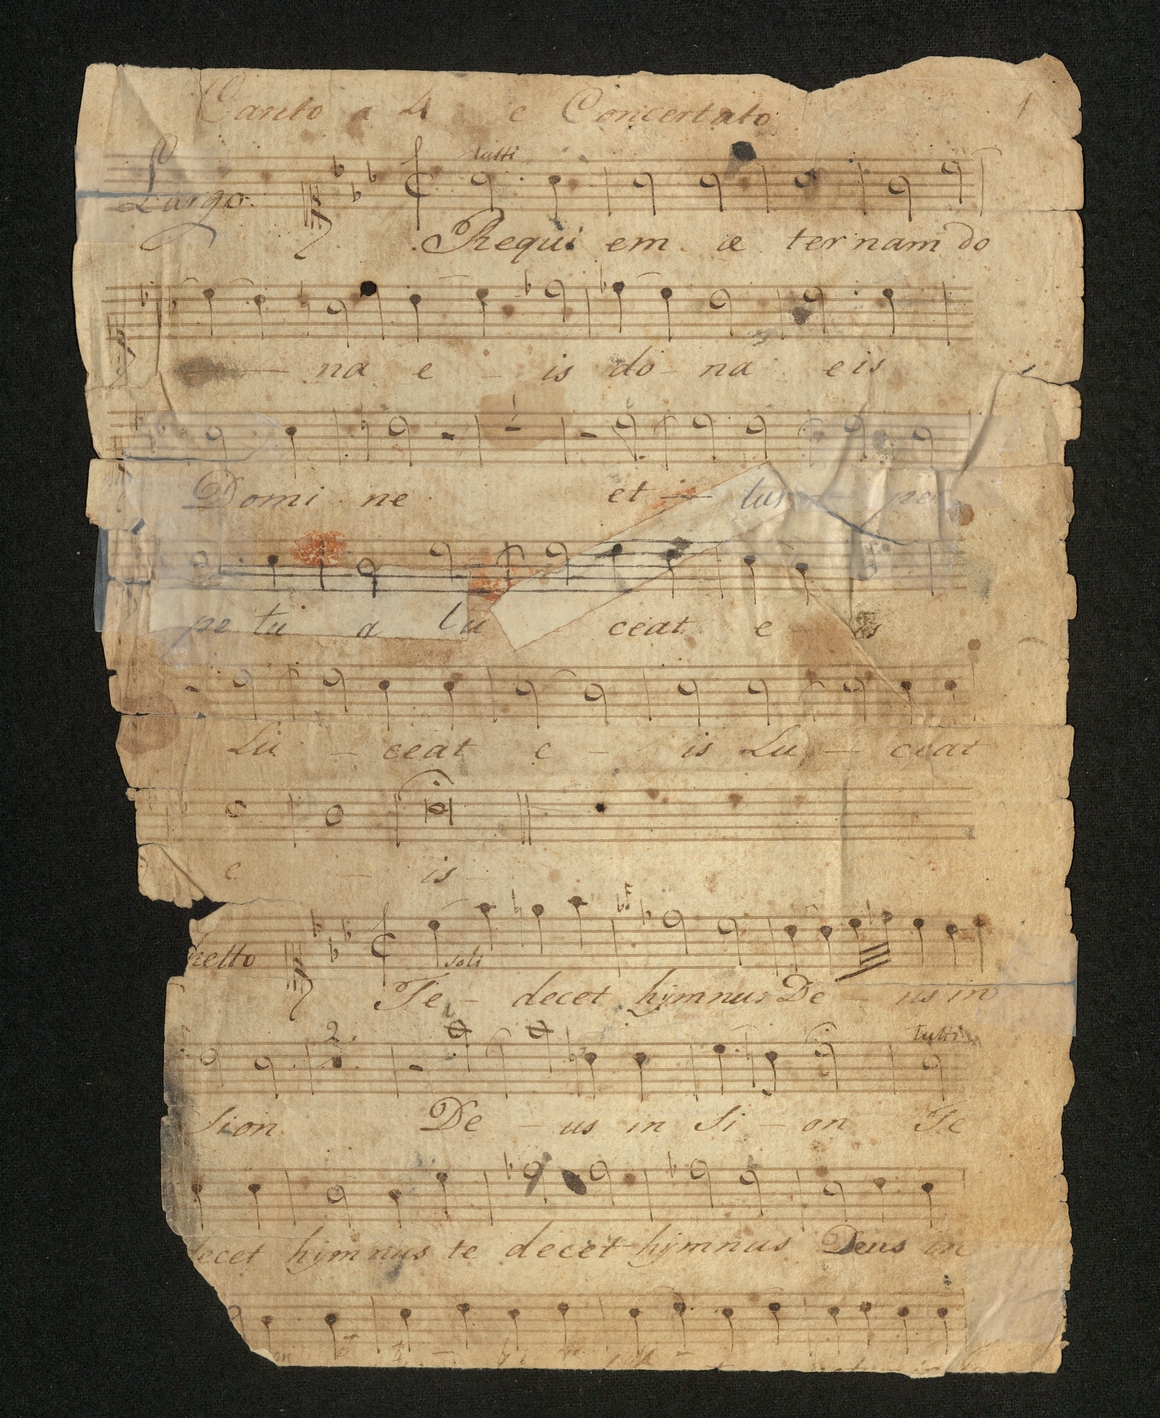 Canto a 4 e Concertato 1
tutti
Largo.
Requi em æ ter nam do
na e - is do - na eis
Domi ne et - lux - per
pe tu a lu ceat e is
Lu - ceat e - is Lu - ceat
e - is
soli
hetto
Te - decet hymnus De - us in
2. tutti
Sion De - us in Si - on Te
decet hymnus te decet hymnus Deus in